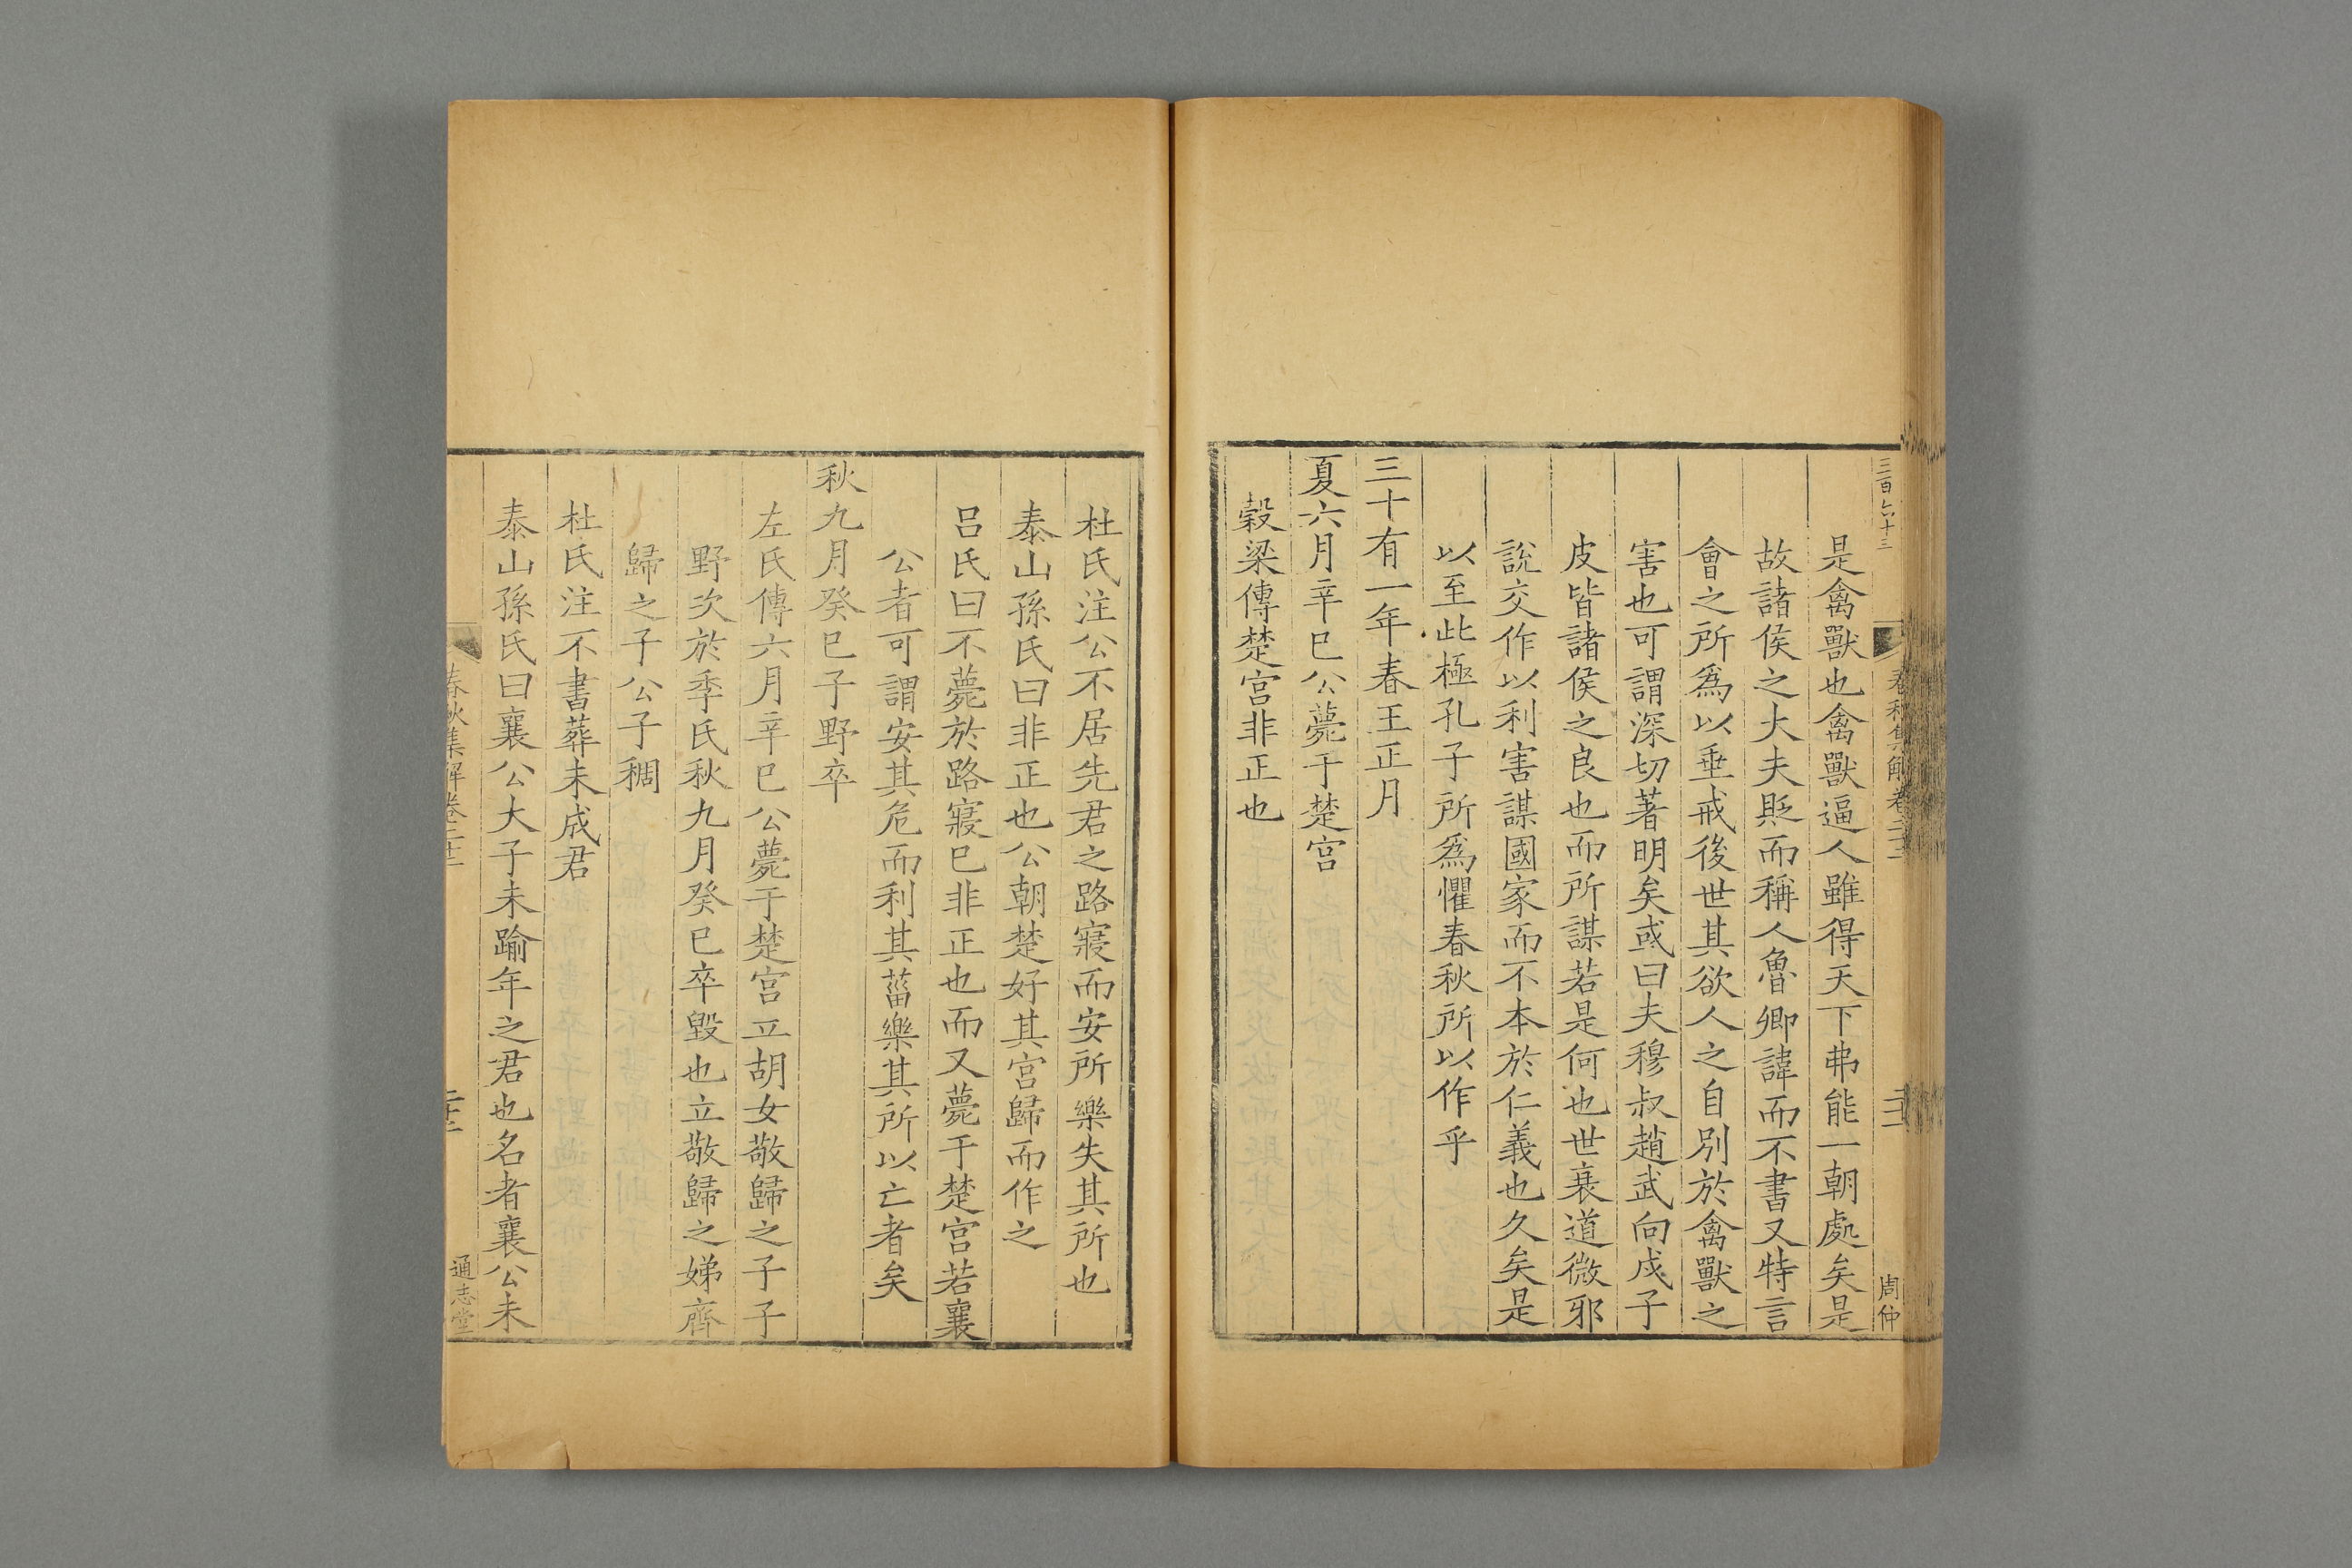 三百六十三
春秋集解卷二十二
二十二
周仲
是禽獸也禽獸逼人雖得天下弗能一朝處矣是
故諸侯之大夫貶而稱人魯卿諱而不書又特言
會之所爲以垂戒後世其欲人之自別於禽獸之
害也可謂深切著明矣或曰夫穆叔趙武向戌子
皮皆諸侯之良也而所謀若是何也世衰道微邪
說交作以利害謀國家而不本於仁義也久矣是
以至此極孔子所爲懼春秋所以作乎
三十有一年春王正月
夏六月辛巳公薨于楚宮
穀梁傳楚宮非正也
杜氏注公不居先君之路寢而安所樂失其所也
泰山孫氏曰非正也公朝楚好其宮歸而作之
呂氏曰不薨於路寢已非正也而又薨于楚宮若襄
公者可謂安其危而利其菑樂其所以亡者矣
秋九月癸巳子野卒
左氏傳六月辛巳公薨于楚宮立胡女敬歸之子子
野次於季氏秋九月癸巳卒毀也立敬歸之娣齊
歸之子公子稠
杜氏注不書葬未成君
泰山孫氏曰襄公大子未踰年之君也名者襄公未
春秋集解卷二十二
二十二
通志堂